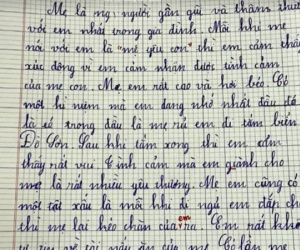 Mẹ là ng người gần gũi và thân thiết
với em nhất trong gia đình. Mỗi khi mẹ
nói với em là "mẹ yêu con" thì em cảm thấy
xúc động vì em cảm nhận được tình cảm
của mẹ con. Mẹ em rất cao và hơi béo Có
một kỉ niệm mà em đáng nhớ nhất đầu
là số trong đầu là mẹ rủ em đi tắm biển
Đồ Sơn Sau khi tắm xong thì em cảm
thấy rất vui Tình cảm mà em giành cho
mẹ là rất nhiều yêu thương. Mẹ em cũng có
một tật xấu là mỗi khi đi ngủ em đắp chă
thì mẹ lại kéo chăn của em ra. Em rất khó